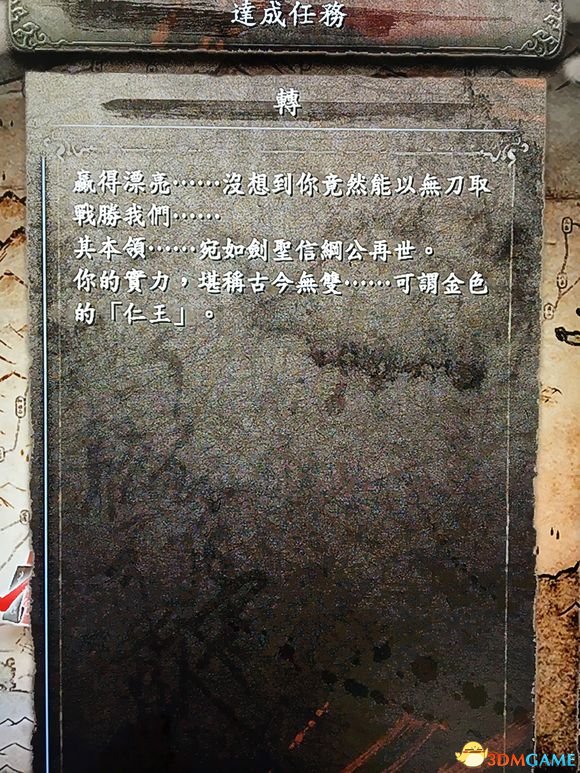 達成任務
轉
贏得漂亮……沒想到你竟然能以無刀取
戰勝我們……
其本領……宛如劍聖信綱公再世。
你的實力，堪稱古今無雙……可謂金色
的「仁王」。
3DMGAME